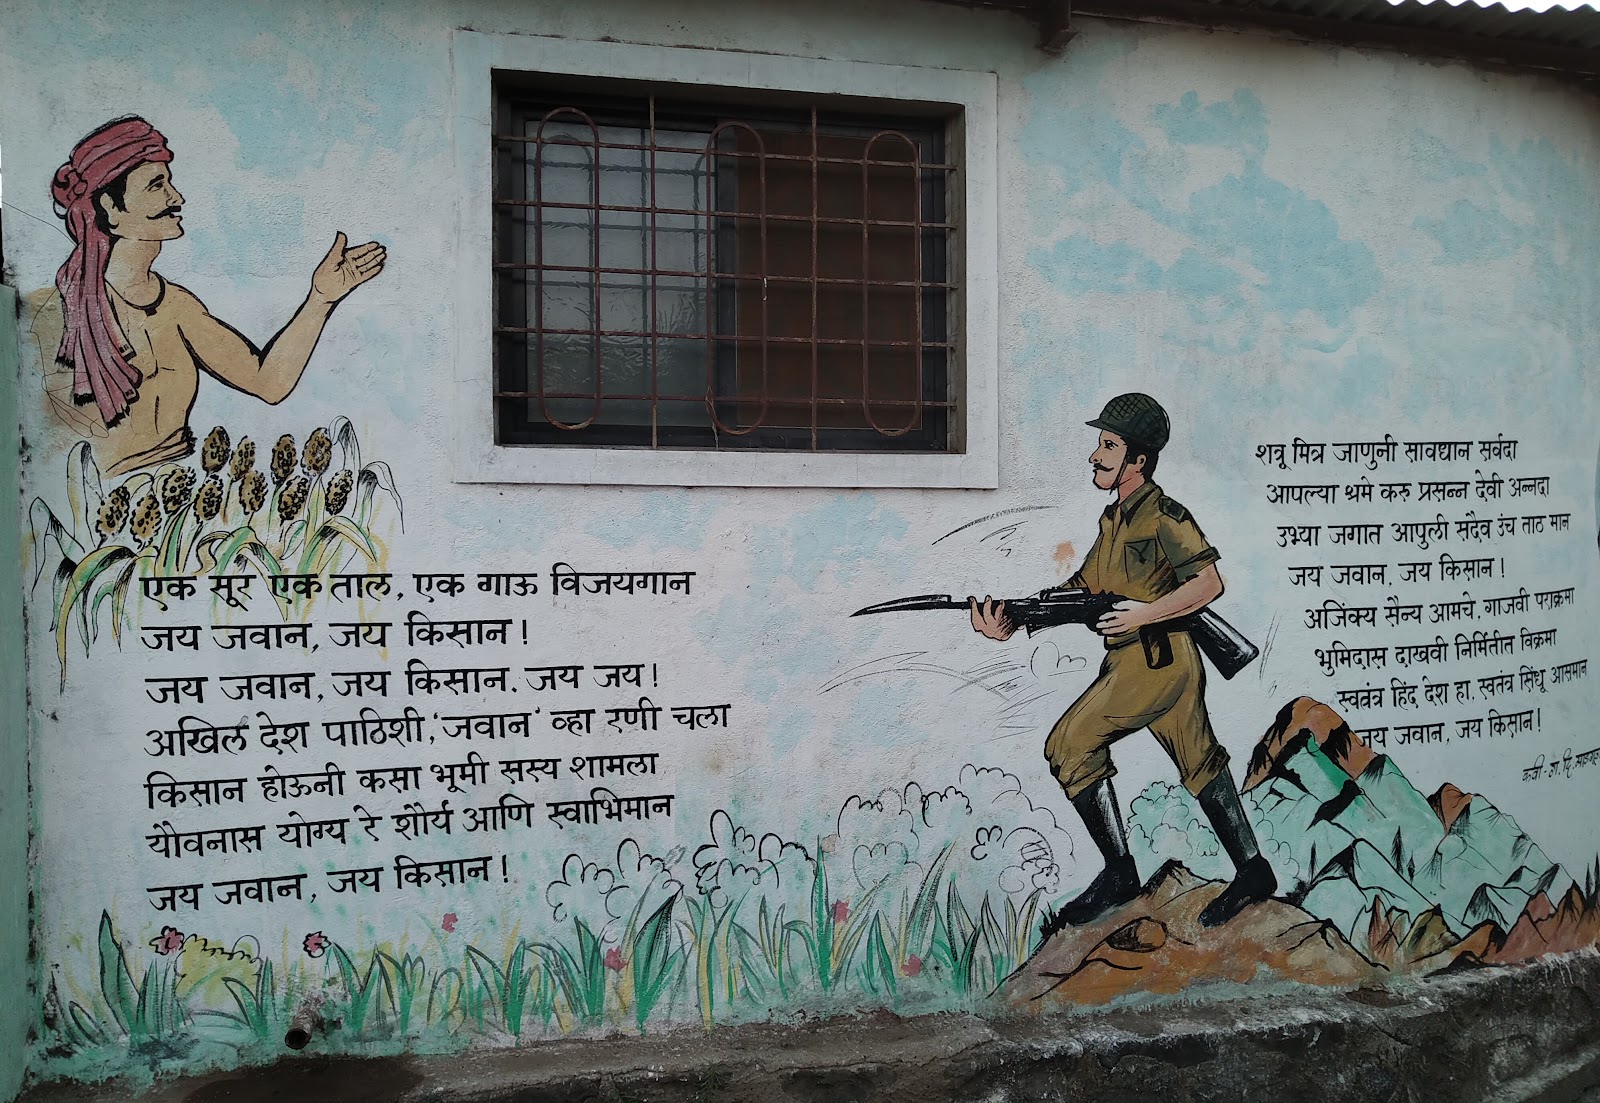 एक सूर एक ताल, एक गाऊ विजयगान
जय जवान, जय किसान!
जय जवान, जय किसान. जय जय!
अखिल देश पाठिशी, 'जवान' व्हा रणी चला
किसान होऊनी कसा भूमी सस्य शामला
यौवनास योग्य रे शौर्य आणि स्वाभिमान
जय जवान, जय किसान!
शत्रू मित्र जाणुनी सावधान सर्वदा
आपल्या श्रमे करु प्रसन्न देवी अन्नदा
उभ्या जगात आपुली सदैव उंच ताठ मान
जय जवान, जय किसान!
अजिंक्य सैन्य आमचे, गाजवी पराक्रमा
भुमिदास दाखवी निर्मितीत विक्रमा
स्वतंत्र हिंद देश हा, स्वतंत्र सिंधू आसमान
जय जवान, जय किसान!
कवी - ग. दि.